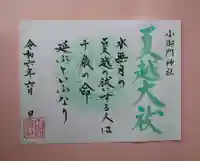 小御門神社
夏越大祓
水無月の
夏越の祓する人は
千歳の命
延ぶといふなり
令和六年六月